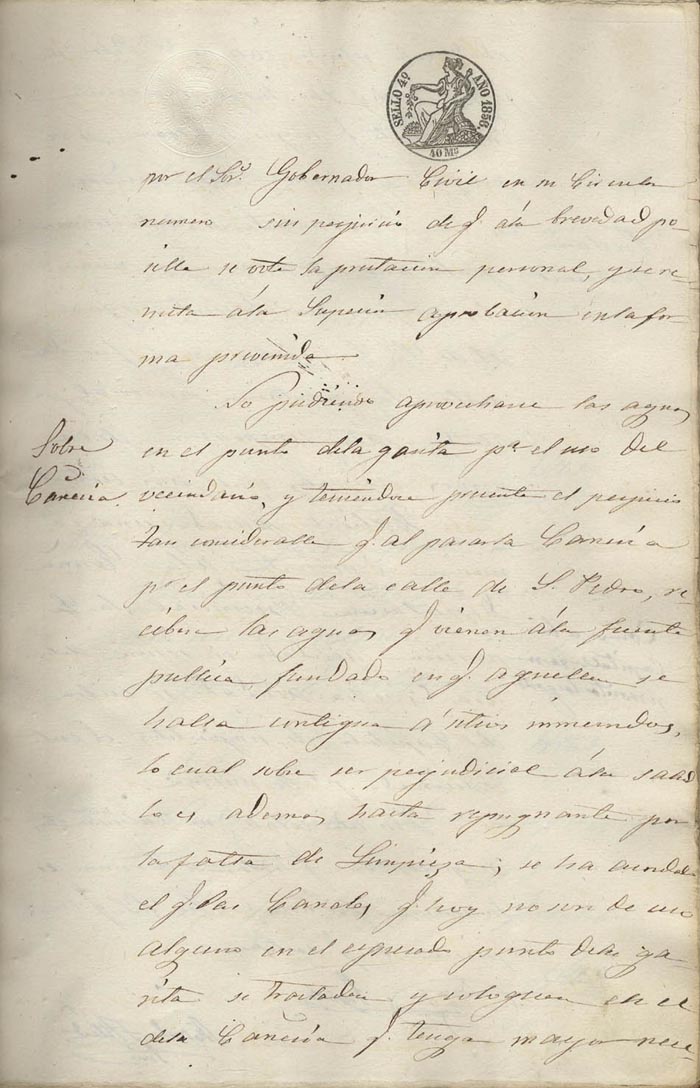 SELLO 4º AÑO 1856.
40 Ms
por el Sor. Gobernador Civil en su Circular
numero sin perjuicio de q. á la brevedad po-
sible se vote la prestacion personal, y se re-
mita á la Superior aprobacion en la for-
ma prevenida.
No pudiendo aprovecharse las aguas
Sobre
Cañería
en el punto de la garita pr. el uso del
vecindario, y teniendose presente el perjuicio
tan considerable q. al pasar la Cañería
pr. el punto de la calle de S. Pedro, re-
ciben las aguas q. vienen á la fuente
publica fundado en q. aquella se
halla contigua á sitios inmundos,
lo cual sobre ser perjudicial á la salud
lo es ademas hasta repugnante por
la falta de Limpieza; se ha acordado
el q. las Canales, q. hoy no son de uso
alguno en el espresado punto de la ga-
rita se trasladen y coloquen en el
de la Cañería q. tenga mayor nece-